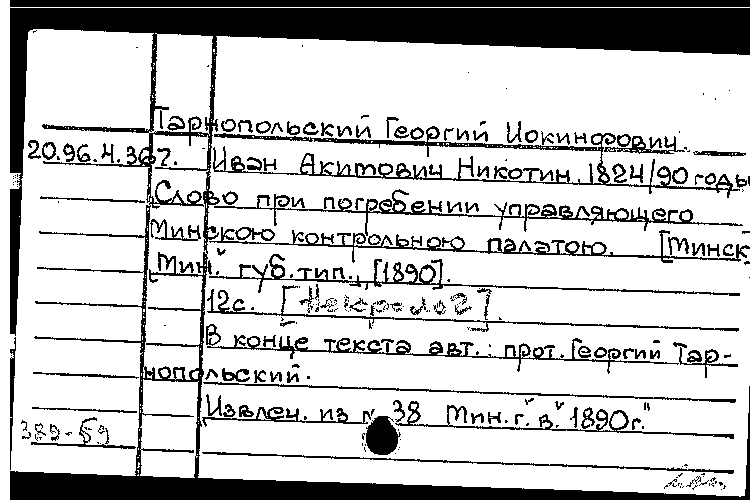 Тарнопольский Георгий Иокинфович.
20.96.4.367. Иван Акимович Никотин. 1824/90 годы
Слово при погребении управляющего
Минскою контрольною палатою. [Минск
"Мин. губ. тип.", [1890].
12с. [Некролог].
В конце текста авт.: прот. Георгий Тар-
нопольский.
Извлеч. из № 38 Мин. г. в." 1890г."
389-59